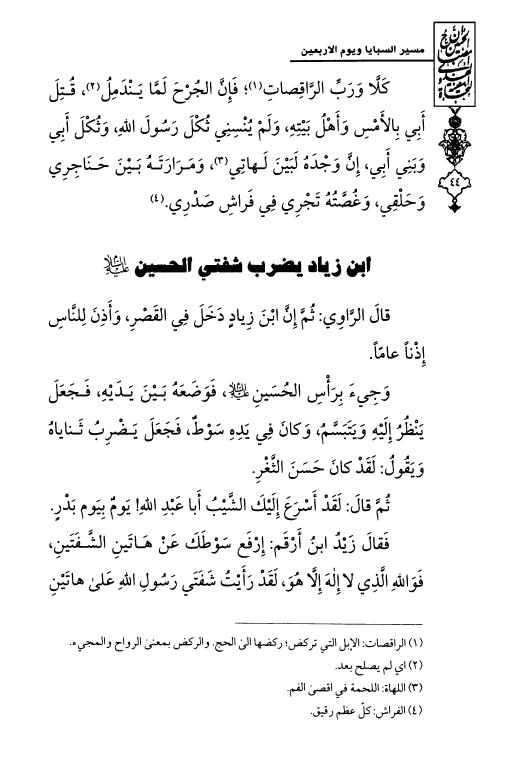 مسير السبايا ويوم الاربعين
٤٤
كَلَّا وَرَبِّ الرَّاقِصاتِ(١)؛ فَإِنَّ الجُرْحَ لَمَّا يَـنْدَمِلُ(٢)، قُـتِلَ
أَبِي بِالأَمْسِ وَأَهْلُ بَيْتِهِ، وَلَمْ يُنْسِنِي ثُكْلَ رَسُولَ اللهِ، وَثُكْلَ أَبِي
وَبَنِي أَبِي، إِنَّ وَجْدَهُ لَبَيْنَ لَـهاتِي(٣)، وَمَـرَارَتَـهُ بَـيْنَ حَـنَاجِرِي
وَحَلْقِي، وَغُصَّتُهُ تَجْرِي فِي فَراشِ صَدْرِي.(٤)
ابن زياد يضرب شفتي الحسين عليه السلام
قالَ الرَّاوِي: ثُمَّ إِنَّ ابْنَ زِيادٍ دَخَلَ فِي القَصْرِ، وَأَذِنَ لِلنَّاسِ
إِذْناً عامّاً.
وَجِيءَ بِرَأْسِ الحُسَينِ عليه السلام، فَوَضَعَهُ بَـيْنَ يَـدَيْهِ، فَـجَعَلَ
يَنْظُرُ إِلَيْهِ وَيَتَبَسَّمُ، وَكانَ فِي يَدِهِ سَوْطٌ، فَجَعَلَ يَـضْرِبُ ثَـناياهُ
وَيَقُولُ: لَقَدْ كانَ حَسَنَ الثَّغْرِ.
ثُمَّ قالَ: لَقَدْ أَسْرَعَ إِلَيْكَ الشَّيْبُ أَبا عَبْدِ اللهِ! يَومٌ بِيَومِ بَدْرٍ.
فَقالَ زَيْدُ ابنُ أَرْقَم: إِرْفَع سَوْطَكَ عَنْ هـاتَينِ الشَّـفَتَينِ،
فَوَاللهِ الَّذِي لا إِلٰهَ إِلَّا هُوَ، لَقَدْ رَأَيْتُ شَفَتَي رَسُولِ اللهِ عَلىٰ هاتَيْنِ
(١) الراقصات: الإبل التي تركض؛ ركضها الىٰ الحج. والركض بمعنىٰ الرواح والمجيء.
(٢) اي لم يصلح بعد.
(٣) اللهاة: اللحمة في اقصىٰ الفم.
(٤) الفراش: كلّ عظم رقيق.